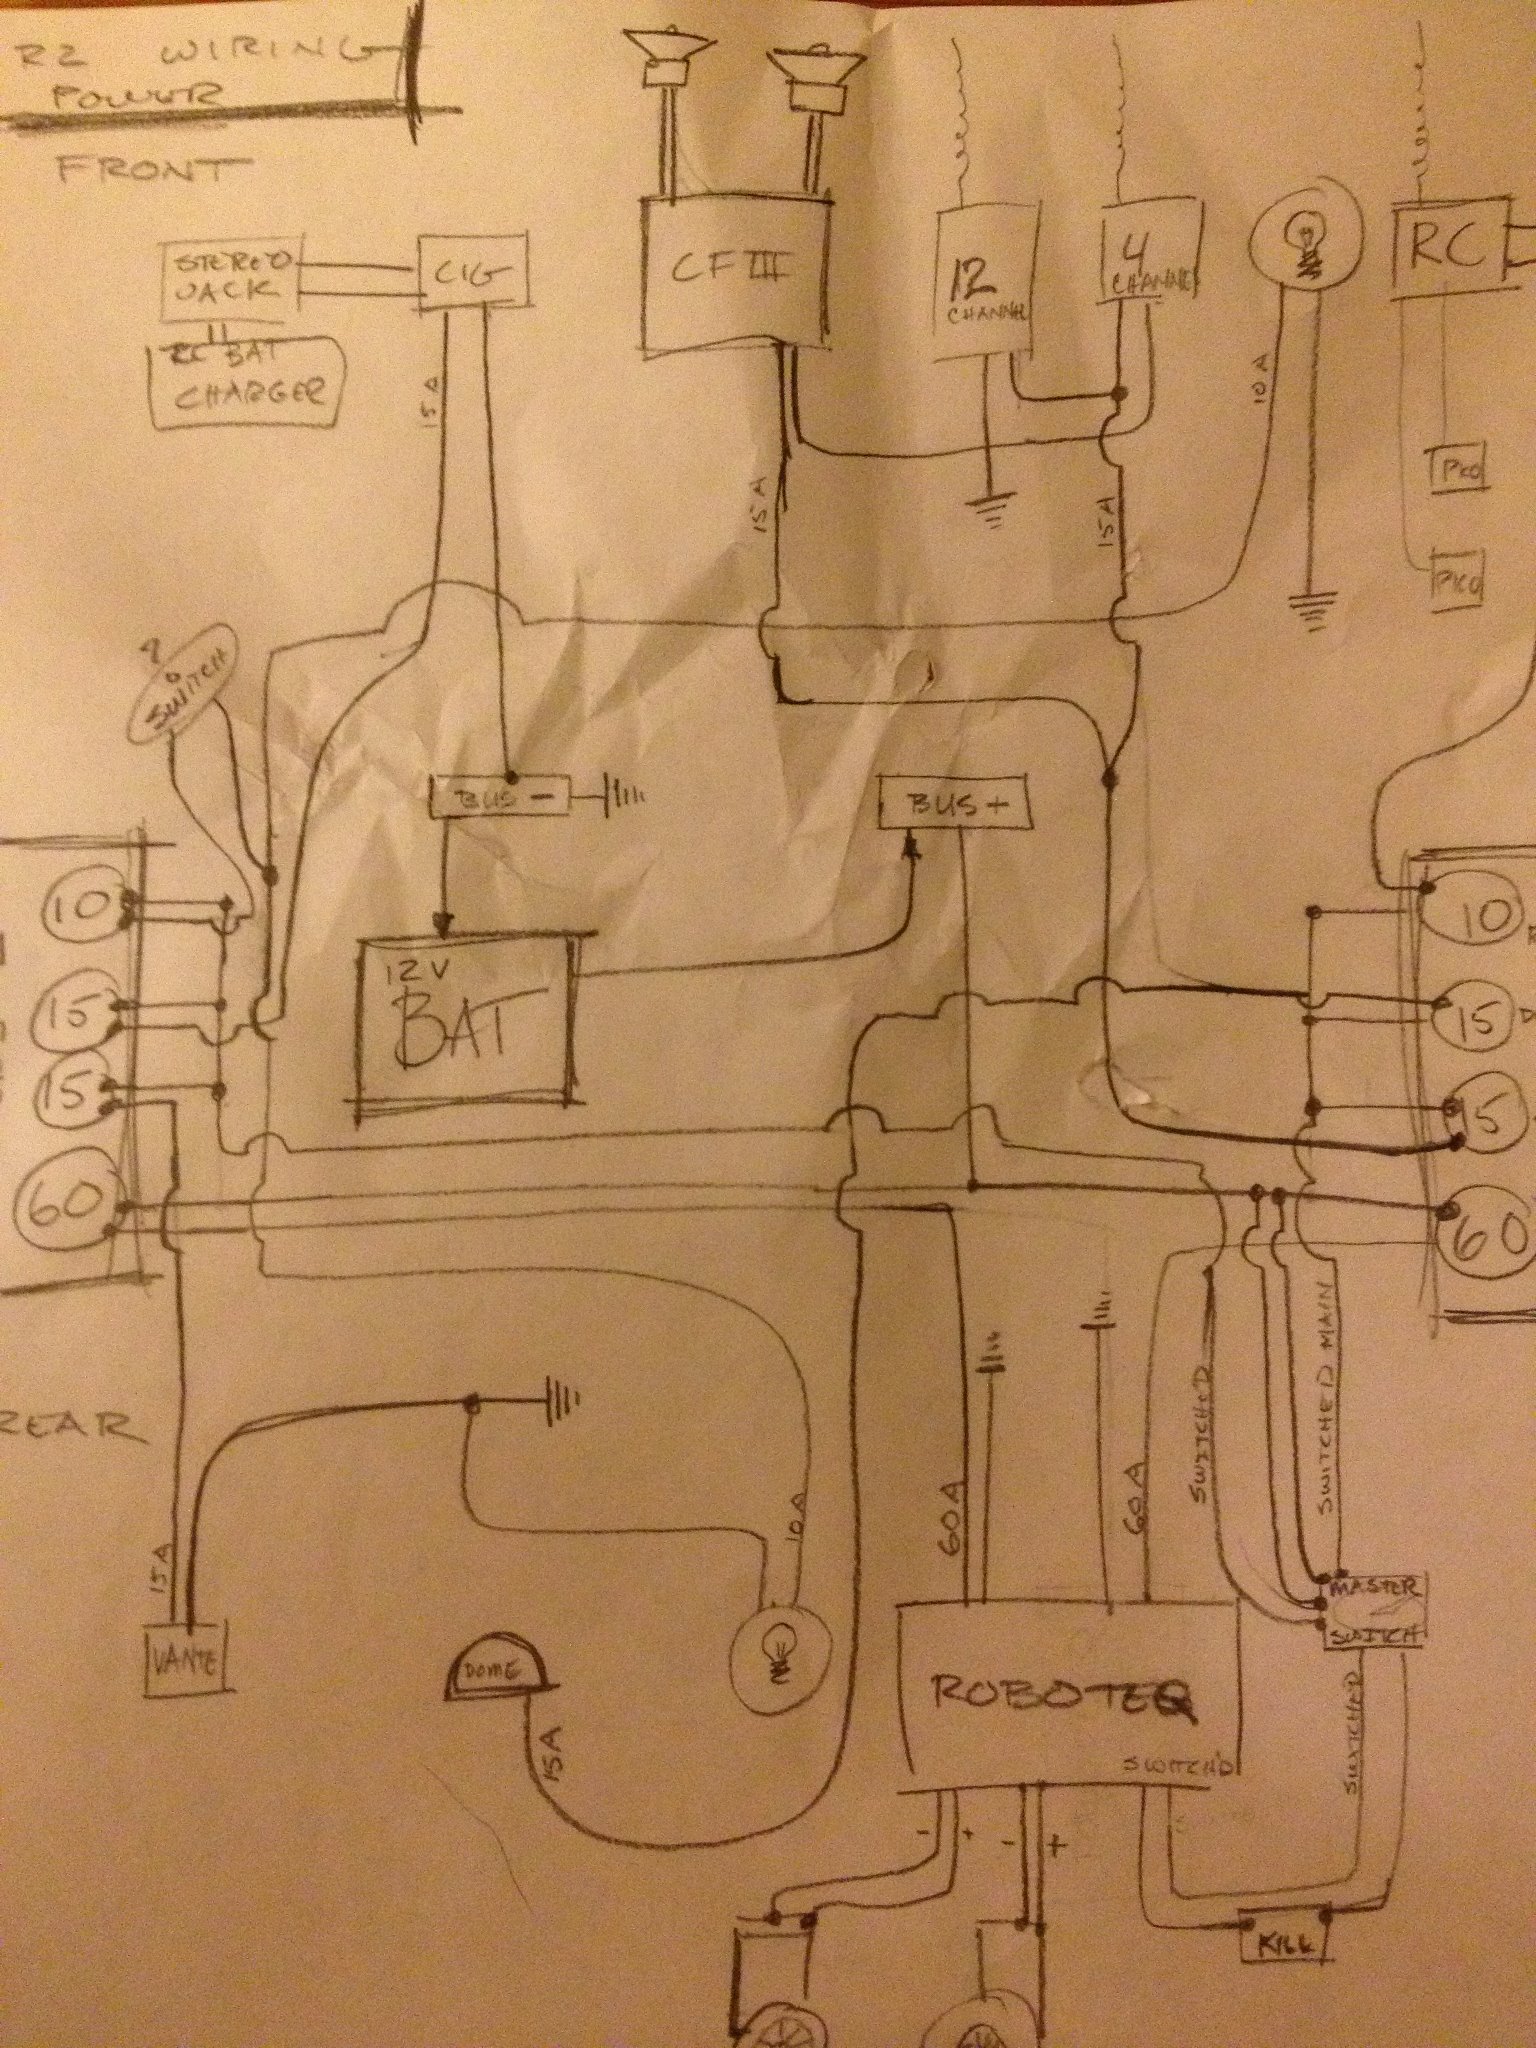 R2 WIRING
POWER
FRONT
STEREO
JACK
CIG
RC BAT
CHARGER
CF III
12
CHANNEL
4
CHANNEL
RC
15A
15A
15A
10A
PICO
PICO
?
SWITCH
BUS -
BUS +
10
15
15
60
12V
BAT
10
15
15
60
REAR
15A
10A
60A
60A
SWITCHED
SWITCHED MAIN
MASTER
SWITCH
DOME
15A
ROBOTEQ
SWITCH'D
SWITCHED
- + - +
KILL